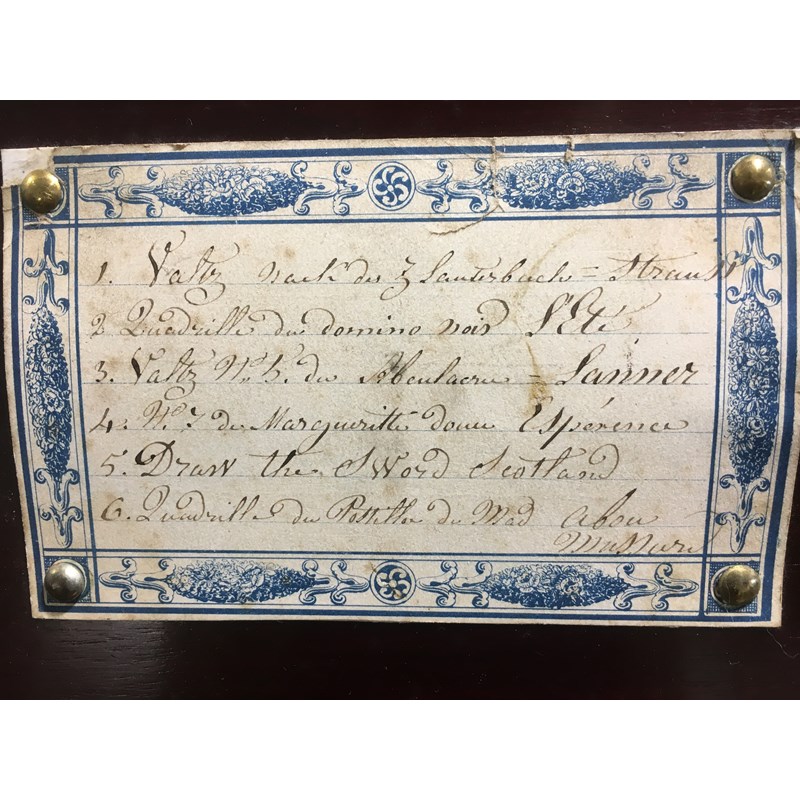 1. Valtz nach des 3 Lauterbach = Strauss
2 Quadrille du domino noir L'Eté
3. Valtz No. 5. de = Lanner
4. No. 7 de Margueritte Espérence
5. Draw the Sword Scotland
6. Quadrille du Postillon de Mad abou
Mussard